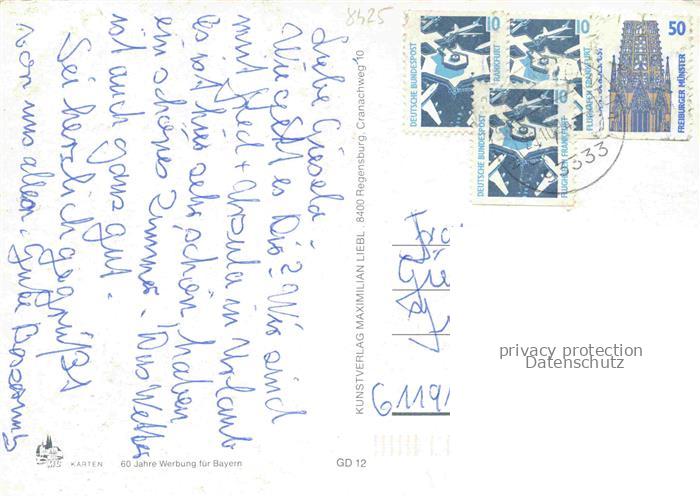 8425
Liebe Gisela -
Wie geht es Dir? Wir sind
mit Fred + Ursula in Urlaub
Es ist hier sehr schön, haben
ein schönes Zimmer. Das Wetter
ist auch ganz gut.
Sei herzlich gegrüßt
von uns allen
KUNSTVERLAG MAXIMILIAN LIEBL . 8400 Regensburg, Cranachweg 10
10
DEUTSCHE BUNDESPOST
FLUGHAFEN FRANKFURT
10
FLUGHAFEN FRANKFURT
50
FREIBURGER MÜNSTER
DEUTSCHE BUNDESPOST
FLUGHAFEN FRANKFURT
Frä
6119
privacy protection
Datenschutz
MIS KARTEN 60 Jahre Werbung für Bayern GD 12